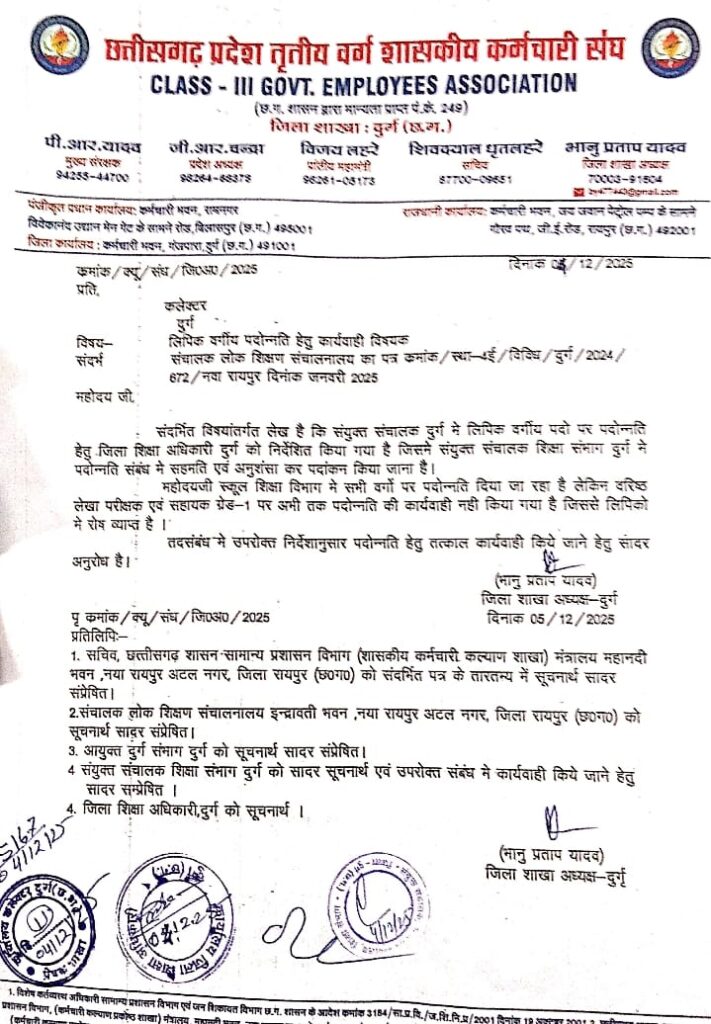 छत्तीसगढ़ प्रदेश तृतीय वर्ग शासकीय कर्मचारी संघ
CLASS - III GOVT. EMPLOYEES ASSOCIATION
(छ.ग. शासन द्वारा मान्यता प्राप्त पं.कं. 249)
जिला शाखा : दुर्ग (छ.ग.)
पी.आर.यादव जी.आर.चन्द्रा विजय लहरे शिवदयाल धृतलहरे भानु प्रताप यादव
मुख्य संरक्षक प्रदेश अध्यक्ष प्रांतीय महामंत्री सचिव जिला शाखा अध्यक्ष
94255-44700 98264-68378 98261-08173 87700-09651 70003-91504
पंजीकृत प्रधान कार्यालय: कर्मचारी भवन, रामनगर
विवेकानंद उद्यान मेन गेट के सामने रोड,बिलासपुर (छ.ग.) 495001
जिला कार्यालय : कर्मचारी भवन, गंजपारा,दुर्ग (छ.ग.) 491001
राजधानी कार्यालय: कर्मचारी भवन, जय जवान पेट्रोल पम्प के सामने
गौरव पथ, जी.ई.रोड, रायपुर (छ.ग.) 492001
कमांक/क्यू/संघ/जि0अ0/2025
दिनांक 05/12/2025
प्रति,
कलेक्टर
दुर्ग
विषय– लिपिक वर्गीय पदोन्नति हेतु कार्यवाही विषयक
संदर्भ संचालक लोक शिक्षण संचालनालय का पत्र कमांक/स्था–4ई/विविध/दुर्ग/2024/
672/नवा रायपुर दिनांक जनवरी 2025
महोदय जी,
संदर्भित विषयांतर्गत लेख है कि संयुक्त संचालक दुर्ग मे लिपिक वर्गीय पदो पर पदोन्नति
हेतु जिला शिक्षा अधिकारी दुर्ग को निर्देशित किया गया है जिसमे संयुक्त संचालक शिक्षा संभाग दुर्ग मे
पदोन्नति संबंध मे सहमति एवं अनुशंसा कर पदांकन किया जाना है।
महोदयजी स्कूल शिक्षा विभाग मे सभी वर्गो पर पदोन्नति दिया जा रहा है लेकिन वरिष्ठ
लेखा परीक्षक एवं सहायक ग्रेड–1 पर अभी तक पदोन्नति की कार्यवाही नही किया गया है जिससे लिपिको
मे रोष व्याप्त है ।
तदसंबंध मे उपरोक्त निर्देशानुसार पदोन्नति हेतु तत्काल कार्यवाही किये जाने हेतु सादर
अनुरोध है।
(भानु प्रताप यादव)
जिला शाखा अध्यक्ष–दुर्ग
दिनांक 05/12/2025
पृ कमांक/क्यू/संघ/जि0अ0/2025
प्रतिलिपिः–
1. सचिव, छत्तीसगढ़ शासन सामान्य प्रशासन विभाग (शासकीय कर्मचारी कल्याण शाखा) मंत्रालय महानदी
भवन ,नया रायपुर अटल नगर, जिला रायपुर (छ0ग0) को संदर्भित पत्र के तारतम्य में सूचनार्थ सादर
संप्रेषित।
2.संचालक लोक शिक्षण संचालनालय इन्द्रावती भवन ,नया रायपुर अटल नगर, जिला रायपुर (छ0ग0) को
सूचनार्थ सादर संप्रेषित।
3. आयुक्त दुर्ग संभाग दुर्ग को सूचनार्थ सादर संप्रेषित।
4 संयुक्त संचालक शिक्षा संभाग दुर्ग को सादर सूचनार्थ एवं उपरोक्त संबंध मे कार्यवाही किये जाने हेतु
सादर सम्प्रेषित ।
4. जिला शिक्षा अधिकारी,दुर्ग को सूचनार्थ ।
(भानु प्रताप यादव)
जिला शाखा अध्यक्ष–दुर्ग
5167
4/12/25
1. विशेष कर्तव्यस्थ अधिकारी सामान्य प्रशासन विभाग एवं जन शिकायत विभाग छ.ग. शासन के आदेश कमांक 3184/सा.प्र.वि./ज.शि.नि.प्र/2001 दिनांक 19 अक्टूबर 2001